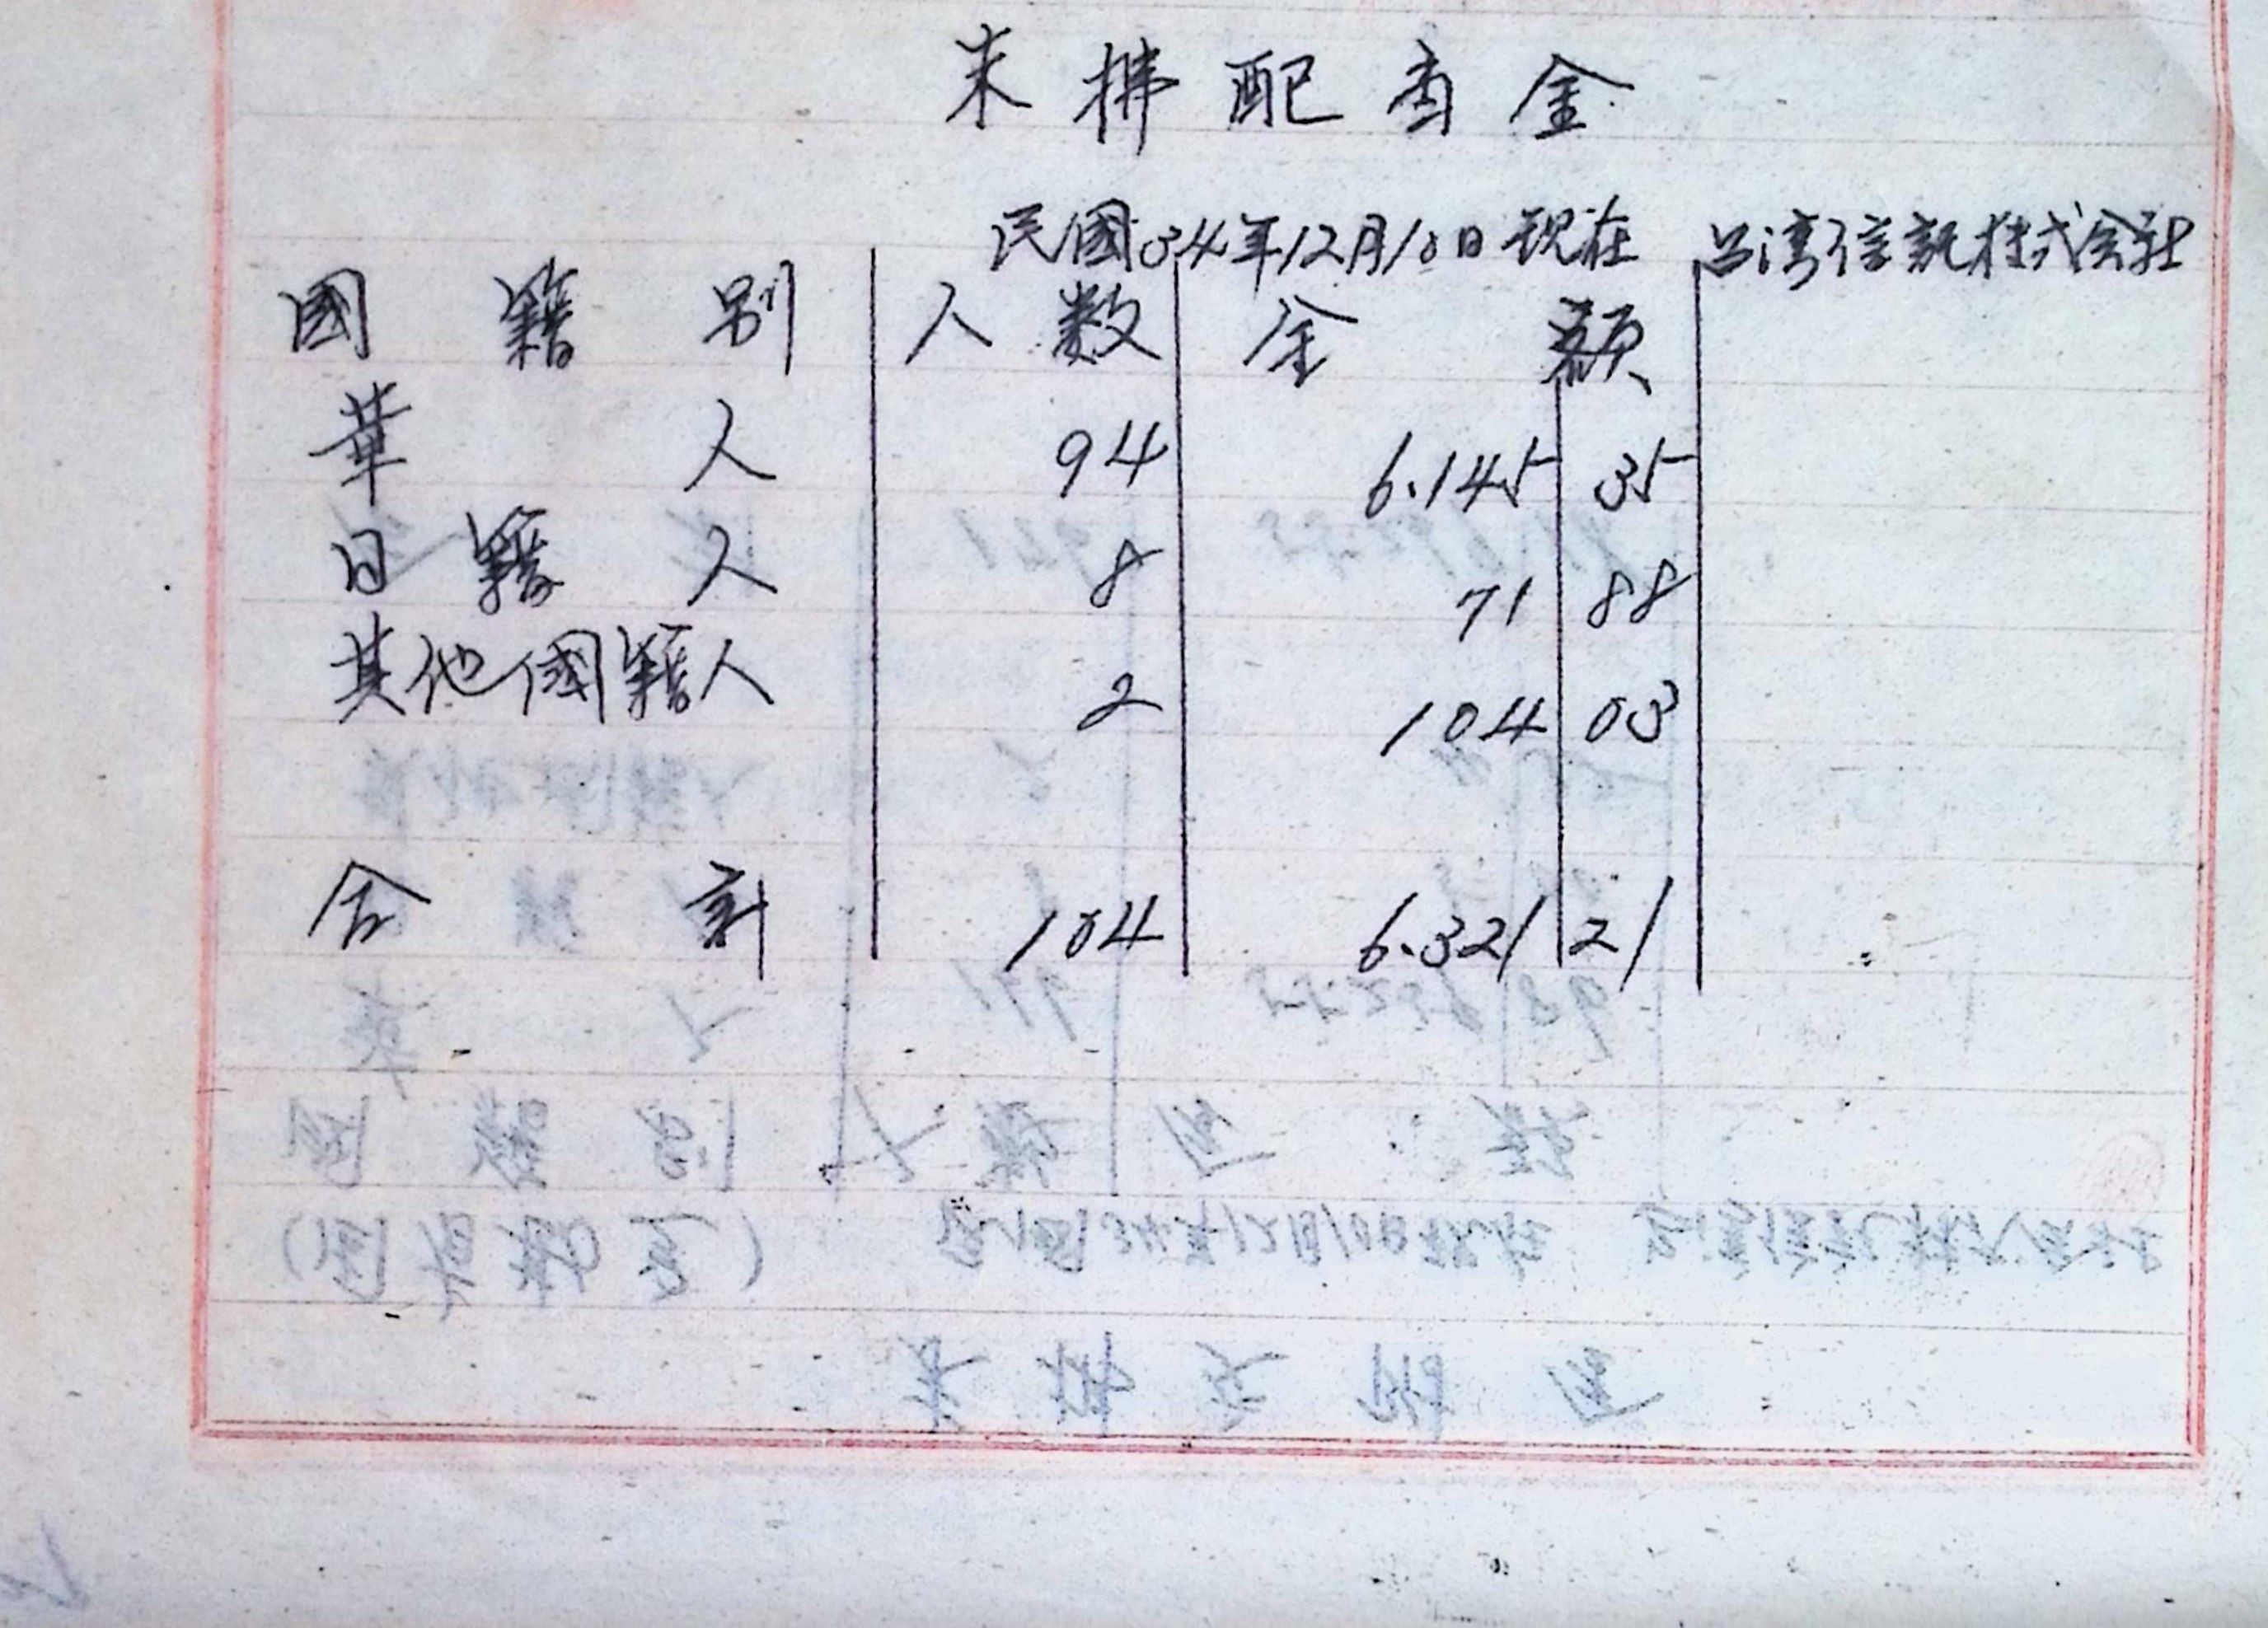 未拂配當金
民國34年12月10日現在 台湾信託株式会社
國籍別 人数 金額
華人 94 6.145 35
日籍人 8 71 88
其他國籍人 2 104 03
合計 104 6.321 21